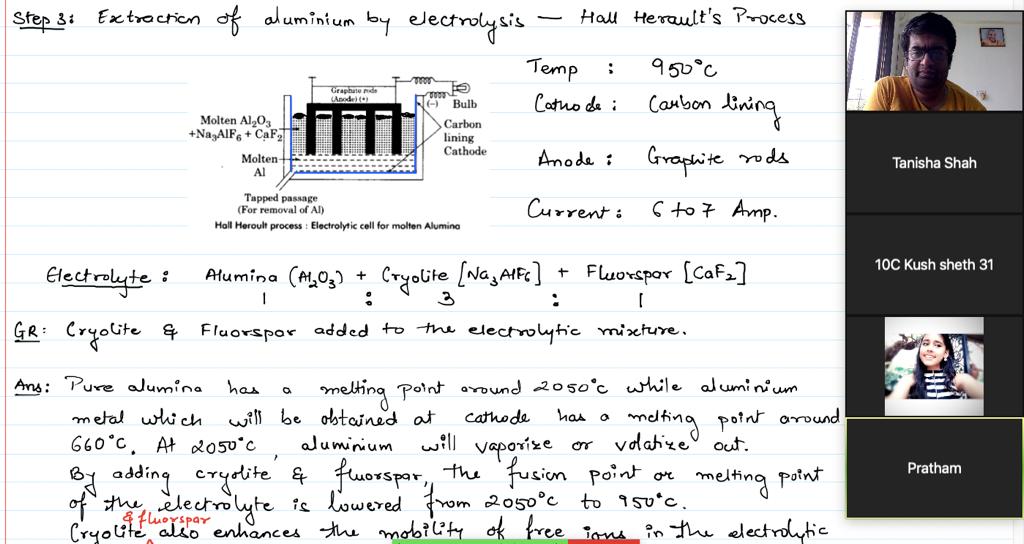 Step 3: Extraction of aluminium by electrolysis — Hall Herault's Process
Graphite rods
(Anode) (+)
(-) Bulb
Molten Al2O3
+Na3AlF6 + CaF2
Carbon
lining
Cathode
Molten
Al
Tapped passage
(For removal of Al)
Hall Heroult process : Electrolytic cell for molten Alumina
Temp : 950°C
Cathode : Carbon lining
Anode : Graphite rods
Current : 6 to 7 Amp.
Electrolyte : Alumina (Al2O3) + Cryolite [Na3AlF6] + Fluorspar [CaF2]
1 : 3 : 1
GR: Cryolite & Fluorspar added to the electrolytic mixture.
Ans: Pure alumina has a melting point around 2050°C while aluminium
metal which will be obtained at cathode has a melting point around
660°C. At 2050°C, aluminium will vaporize or volatize out.
By adding cryolite & fluorspar, the fusion point or melting point
of the electrolyte is lowered from 2050°C to 950°C.
& fluorspar
Cryolite also enhances the mobility of free ions in the electrolytic
Tanisha Shah
10C Kush sheth 31
Pratham